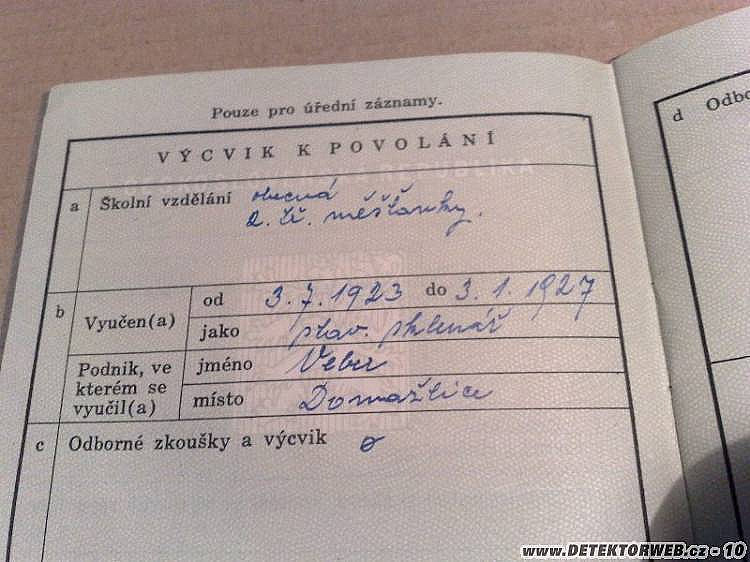 Pouze pro úřední záznamy.
VÝCVIK K POVOLÁNÍ
a Školní vzdělání obecná
2. tř. měšťanky.
b Vyučen(a) od 3.7.1923 do 3.1.1927
jako stav. sklenář
Podnik, ve kterém se vyučil(a) jméno Veber
místo Domažlice
c Odborné zkoušky a výcvik
d Odbo
www.DETEKTORWEB.cz - 10